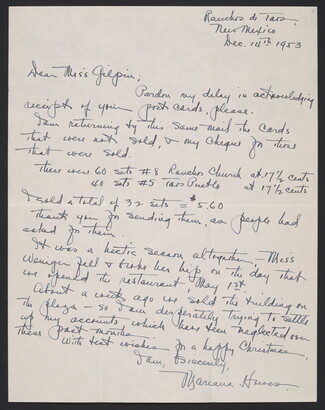 Ranchos de Taos
New Mexico
Dec. 14th 1953
Dear Miss Gilpin,
Pardon my delay in acknowledging
receipt of your post cards, please.
I am returning by this same mail the cards
that were not sold, & my cheque for those
that were sold.
There were 60 sets #8 Ranchos Church at 17½ cents
40 sets #5 Taos Pueblo at 17½ cents
I sold a total of 32 sets = $5.60
Thank you for sending them, as people had
asked for them.
It was a hectic season altogether — Miss
fell & broke her hip on the day that
we opened the restaurant, May 1st.
About a week ago we sold the building on
the plaza — so I am desperately trying to settle
up my accounts which have been neglected over
these past months.
With best wishes for a happy Christmas,
I am, Sincerely,
Mariana